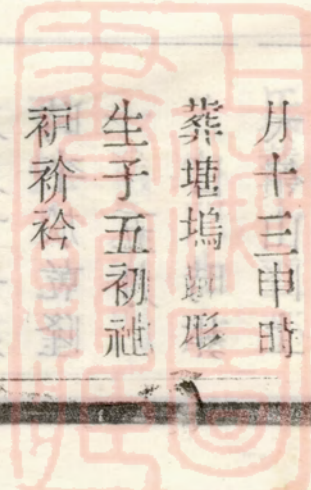 月十三申時
葬塘塢 形
生子五初祉
祈祄衿